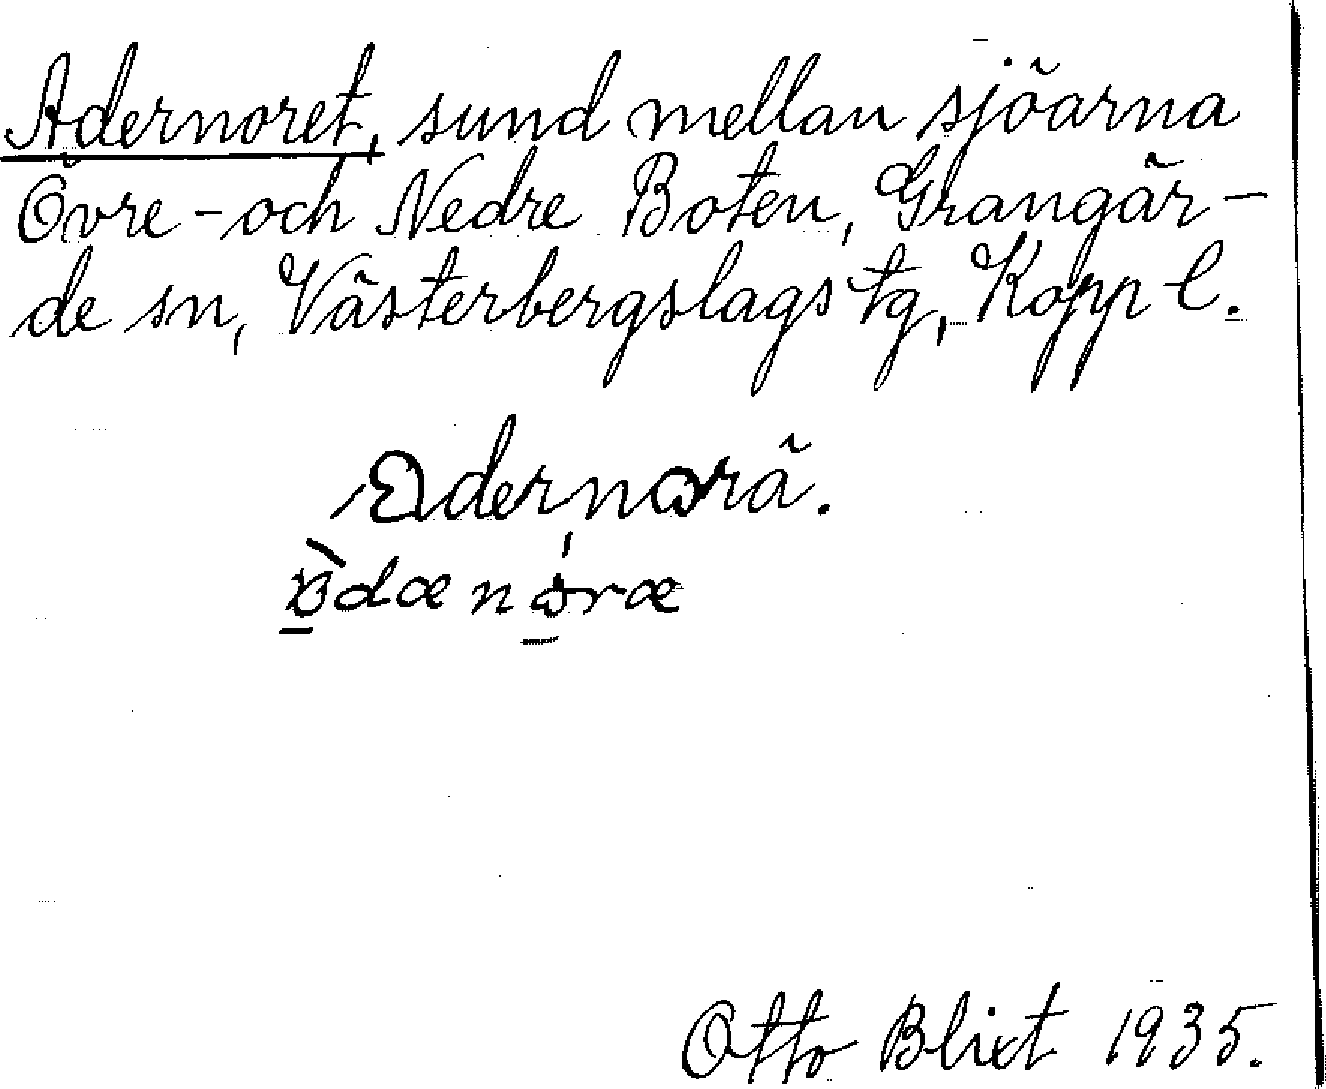 Adernoret, sund mellan sjöarna
Övre - och Nedre Boten, Grangär-
de sn, Västerbergslags tg, Kopp l.
Otto Blixt 1935.